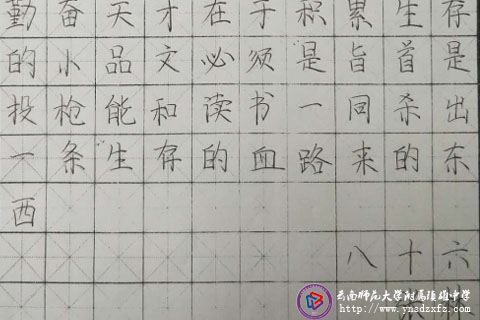 勤奋天才在于积累生存
的小品文必须是旨首是
投枪能和读书一同杀出
一条生存的血路来的东
西
八十六
云南师范大学附属镇雄中学
http://www.ynsdzxfz.com